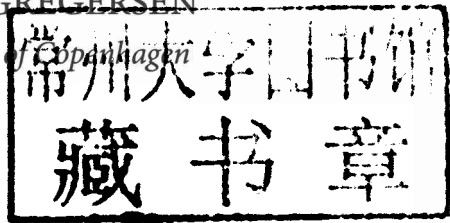 GREGERSEN
of Copenhagen
常州大学图书馆
藏书章